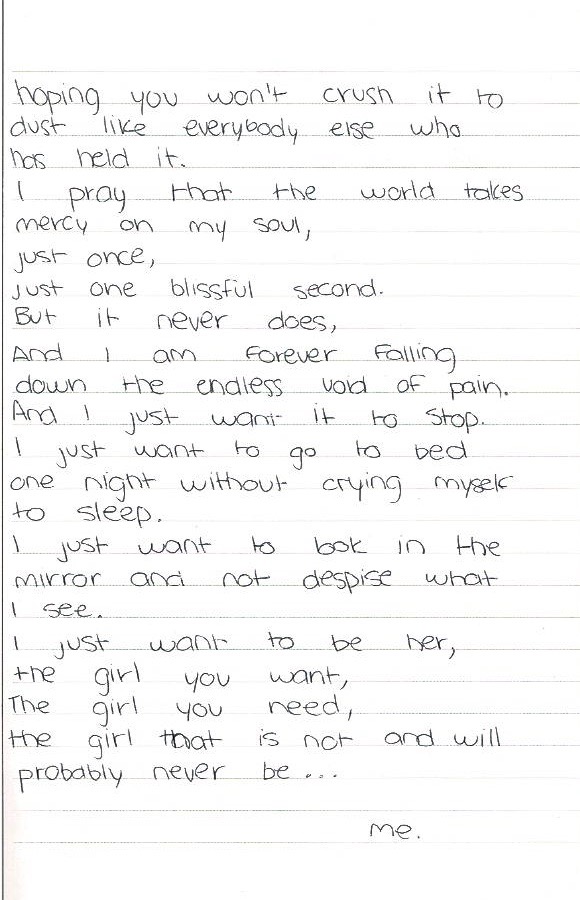 hoping you won't crush it to
dust like everybody else who
has held it.
I pray that the world takes
mercy on my soul,
just once,
just one blissful second.
But it never does,
And I am forever falling
down the endless void of pain.
And I just want it to stop.
I just want to go to bed
one night without crying myself
to sleep.
I just want to look in the
mirror and not despise what
I see.
I just want to be her,
the girl you want,
The girl you need,
the girl that is not and will
probably never be ...
me.